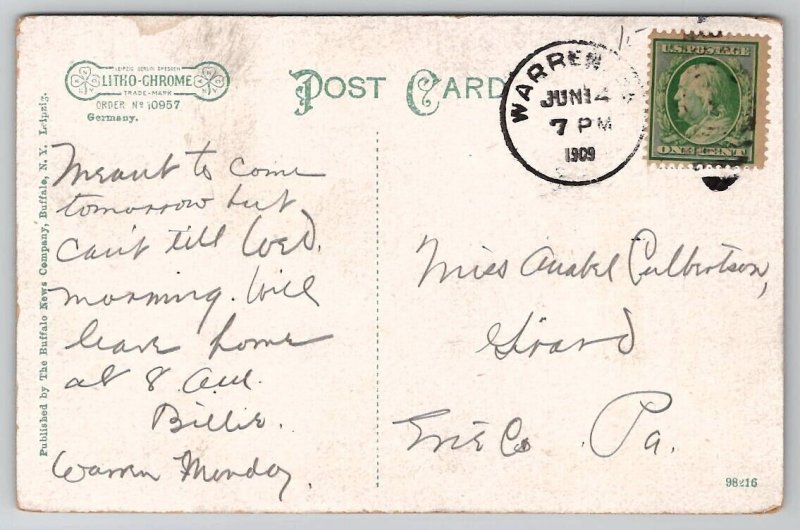 LEIPZIG BERLIN DRESDEN
LITHO-CHROME
TRADE-MARK
ORDER No 10957
Germany.
POST CARD
WARREN
JUN 14
7 PM
1909
U.S. POSTAGE
ONE CENT
Published by The Buffalo News Company, Buffalo, N. Y. Leipzig.
Meant to come
tomorrow but
can't till Wed.
morning. Will
leave home
at 8 a.m.
Billie.
Warren Monday.
Miss Anabel Culbertson,
Girard
Erie Co. Pa.
98216